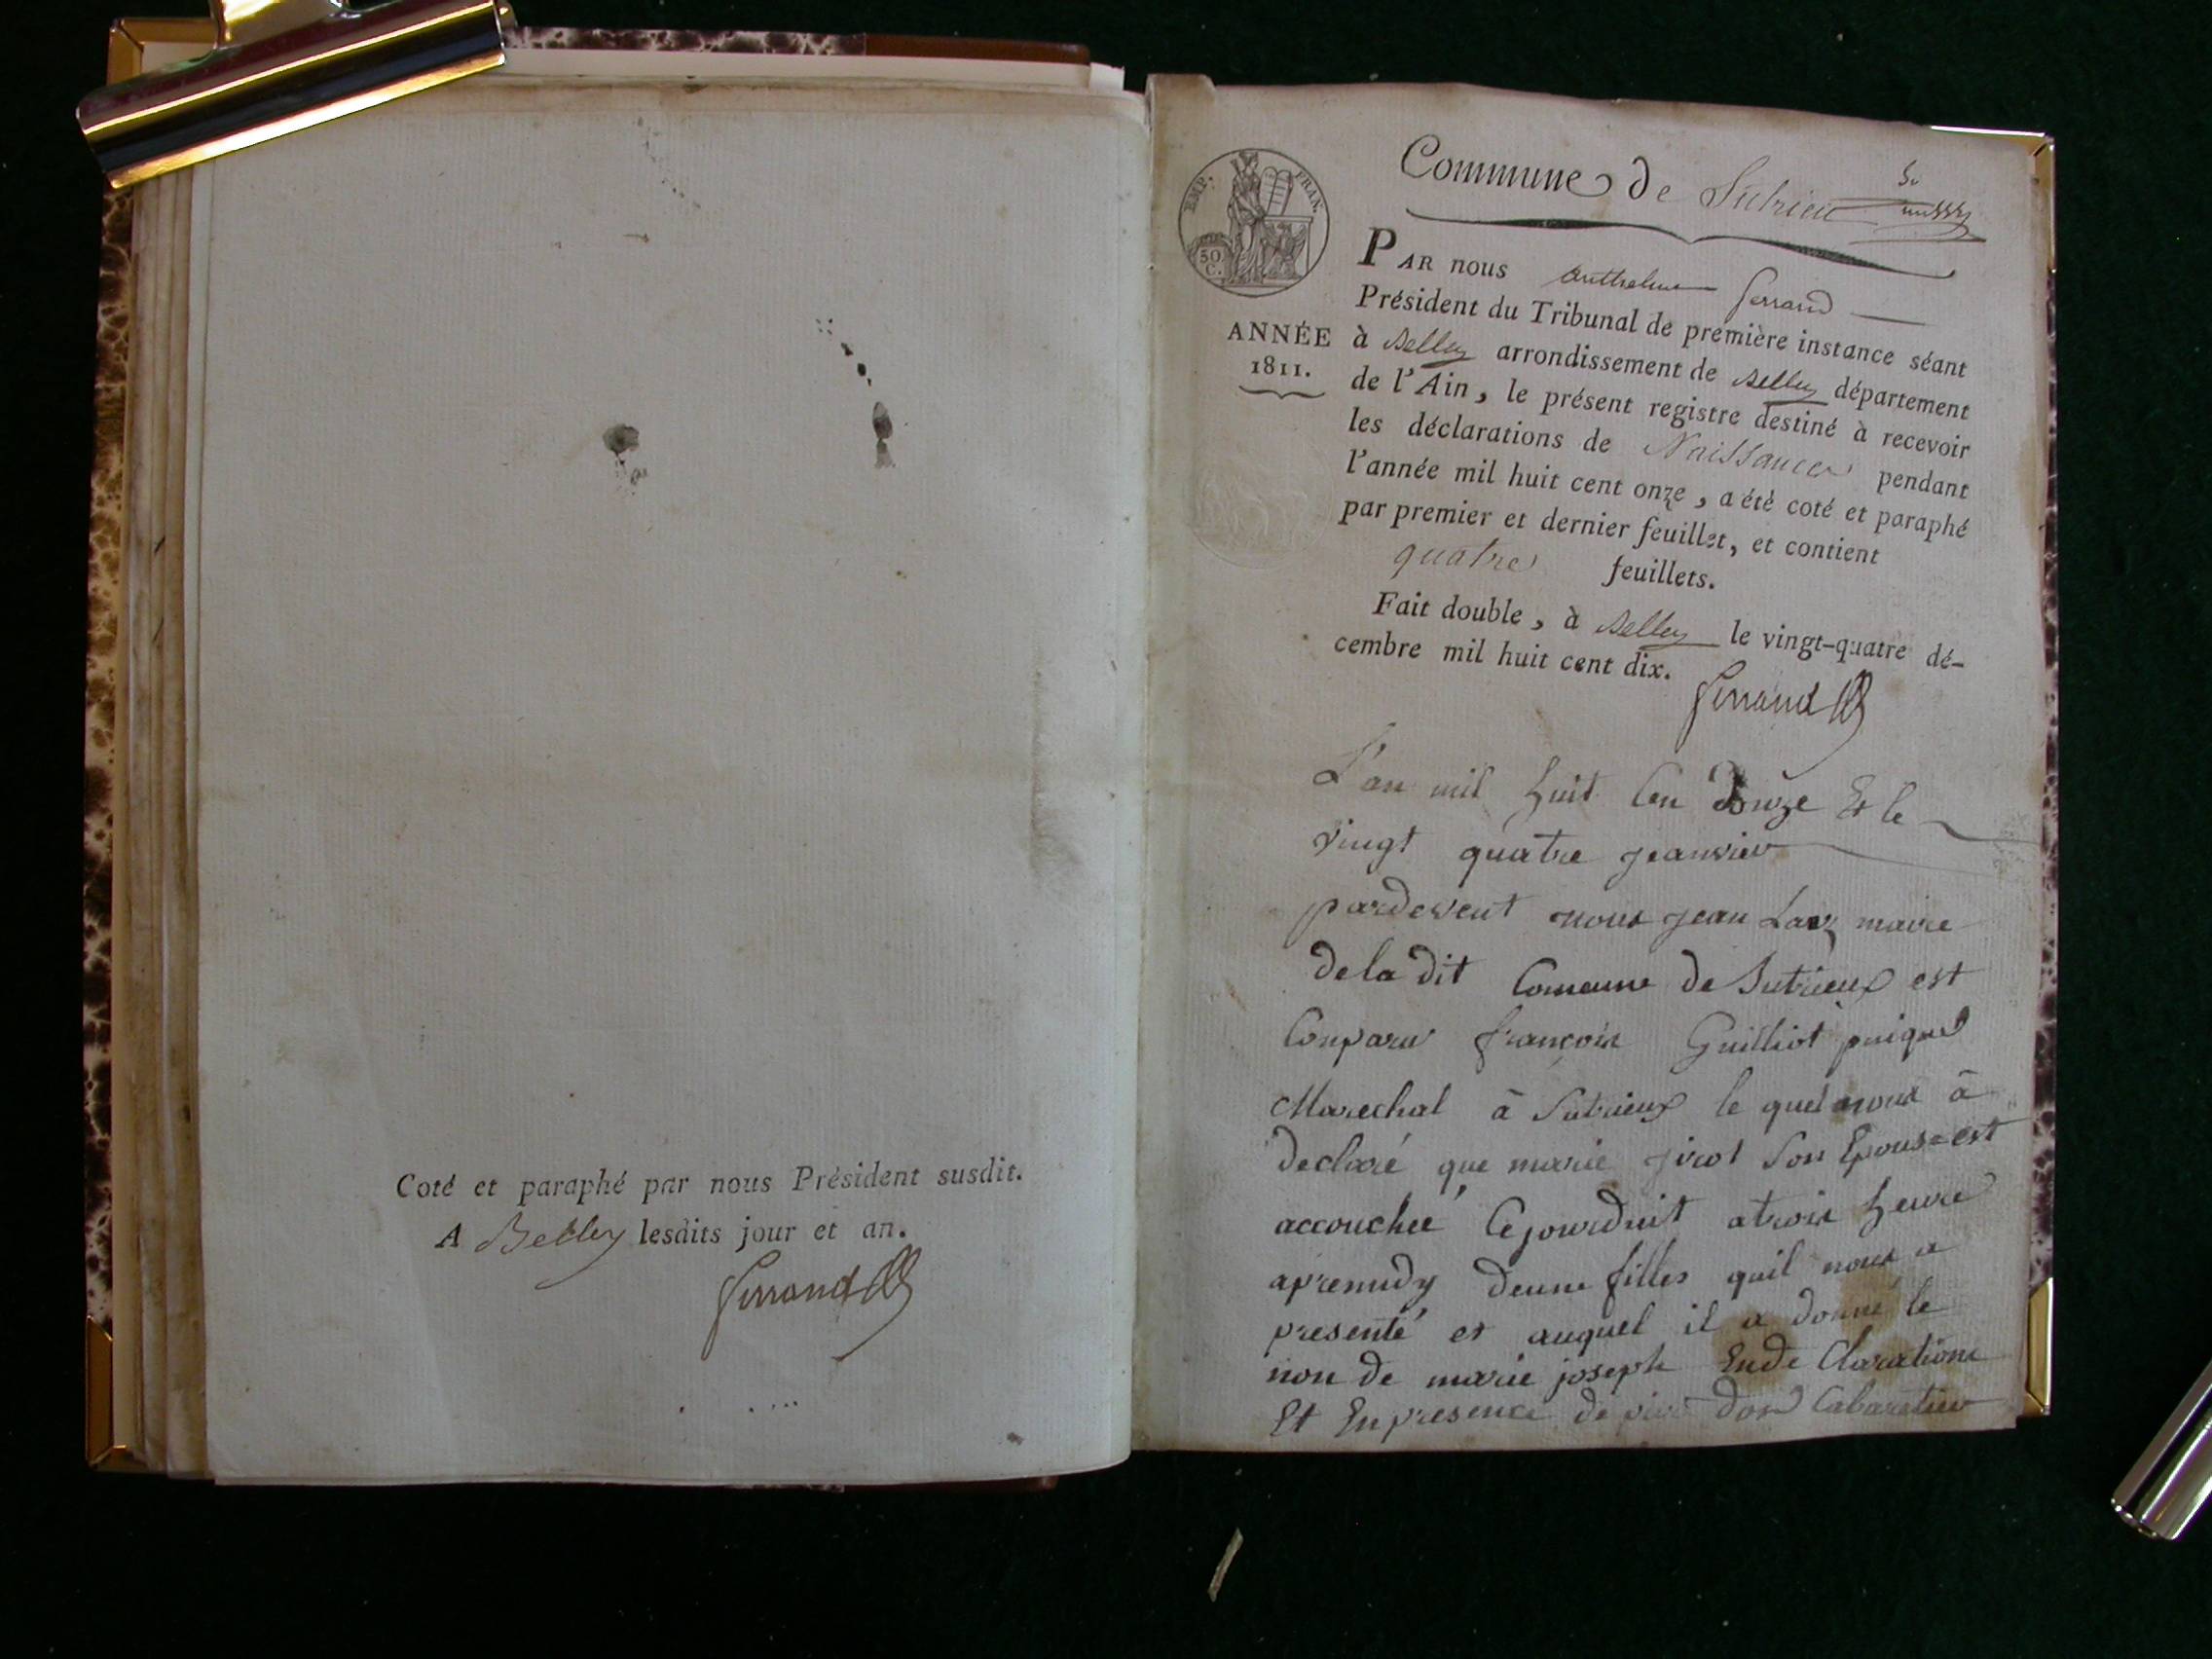 Coté et paraphé par nous Président susdit.
A Belley lesdits jour et an.
Ferrand
EMP. FRAN.
50.
C.
Commune de Sutrieu
PAR nous Anthelme Ferrand
Président du Tribunal de première instance séant
ANNÉE
1811.
à Belley arrondissement de Belley département
de l'Ain, le présent registre destiné à recevoir
les déclarations de Naissances pendant
l'année mil huit cent onze, a été coté et paraphé
par premier et dernier feuillet, et contient
quatre feuillets.
Fait double, à Belley le vingt-quatre dé-
cembre mil huit cent dix.
Ferrand
L'an mil huit Cen donze Et le
vingt quatre jeanvier
pardevent nous jean maire
de la dit Comeune de Sutrieux est
Conparu françois Guilliot
Marechal à Sutrieux le quel nous à
declaré que marie jirot Son Epouse est
accouchée Cejourduit atrois heure
apremidy deune filles quil nous a
presenté et auquel il a donné le
non de marie joseph Ende Claration
Et En presence de Cabaretier